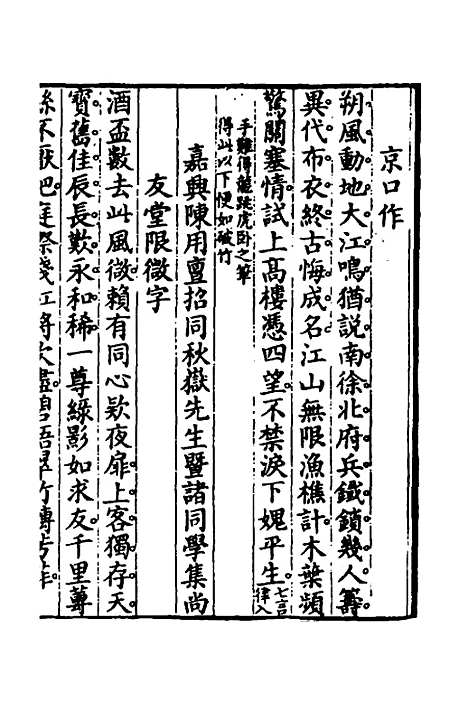 京口作
朔風動地大江鳴猶説南徐北府兵鐵鎖幾人籌
異代布衣終古悔成名江山無限漁樵計木葉頻
驚關塞情試上高樓憑四望不禁淚下媿平生七言律入
手難得龍跳虎卧之筆
得此以下便如破竹
嘉興陳用亶招同秋嶽先生暨諸同學集尚
友堂限徵字
酒盃數去此風微賴有同心欵夜扉上客獨存天
寶舊佳辰長歎永和稀一尊綠影如求友千里蓴
絲不厭肥庭際殘紅將次盡碧梧翠竹轉